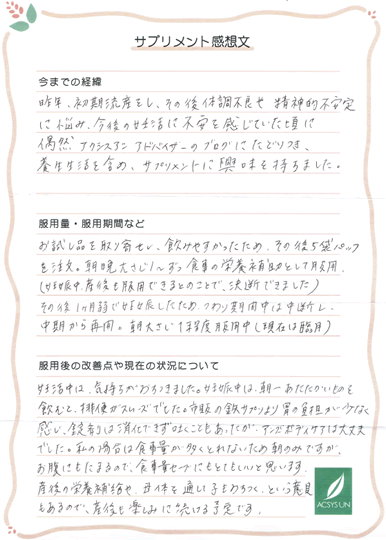 サプリメント感想文
今までの経緯
昨年、初期流産をし、その後体調不良や精神的不安定
に悩み、今後の妊活に不安を感じていた頃に
偶然、アクシスアンアドバイザーのブログにたどりつき、
養生生活を含め、サプリメントに興味を持ちました。
服用量・服用期間など
お試し品を取り寄せし、飲みやすかったため、その後5袋
を注文。朝晩大さじ1〜ずつ食事の栄養補助として服用。
(妊娠中、産後も服用できるとのことで、決断できました)
その後1ヶ月弱で妊娠したため、つわり期間中は中断し、
中期から再開。朝大さじ1杯程度服用中(現在は臨月)
服用後の改善点や現在の状況について
妊活中は、気持ちがおちつきました。妊娠中は、朝一あたたかいものを
飲むと、排便がスムーズでした。市販の鉄サプリより胃の負担が少なく
感じ、錠剤は消化できず吐くこともあったが、アンボディケアは大丈夫
でした。私の場合は食事量が多くとれないため朝のみですが、
お腹にもたまるので、食事量セーブにもとてもいいと思います。
産後の栄養補給や、母体を通し子もおちつく、という意見
もあるので、産後も楽しみに続ける予定です。
ACSYSUN